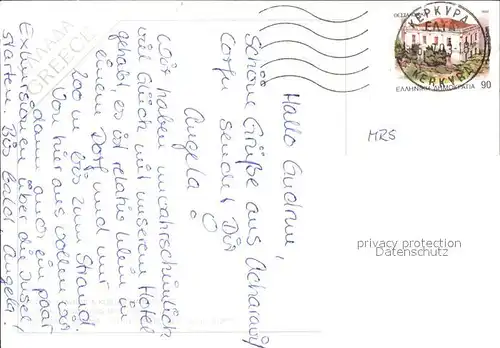 Hallo Gudrun,
Schöne Grüße aus Acharavi/
Corfu sendet Dir
Angela.
Wir haben unwahrscheinlich
viel Glück mit unserem Hotel
gehabt, es ist relativ klein in
einem Dorf und nur
200 m bis zum Strand.
Von hier aus wollen wir
dann auch ein paar
Exkursionen über die Insel
starten. Bis bald, Angela.
ΕΛΛΑΔΑ
GREECE
ΚΕΡΚΥΡΑ
ΚΕΡΚΥΡΑ
ΕΛΛΗΝΙΚΗ ΔΗΜΟΚΡΑΤΙΑ 90
MRS
privacy protection
Datenschutz